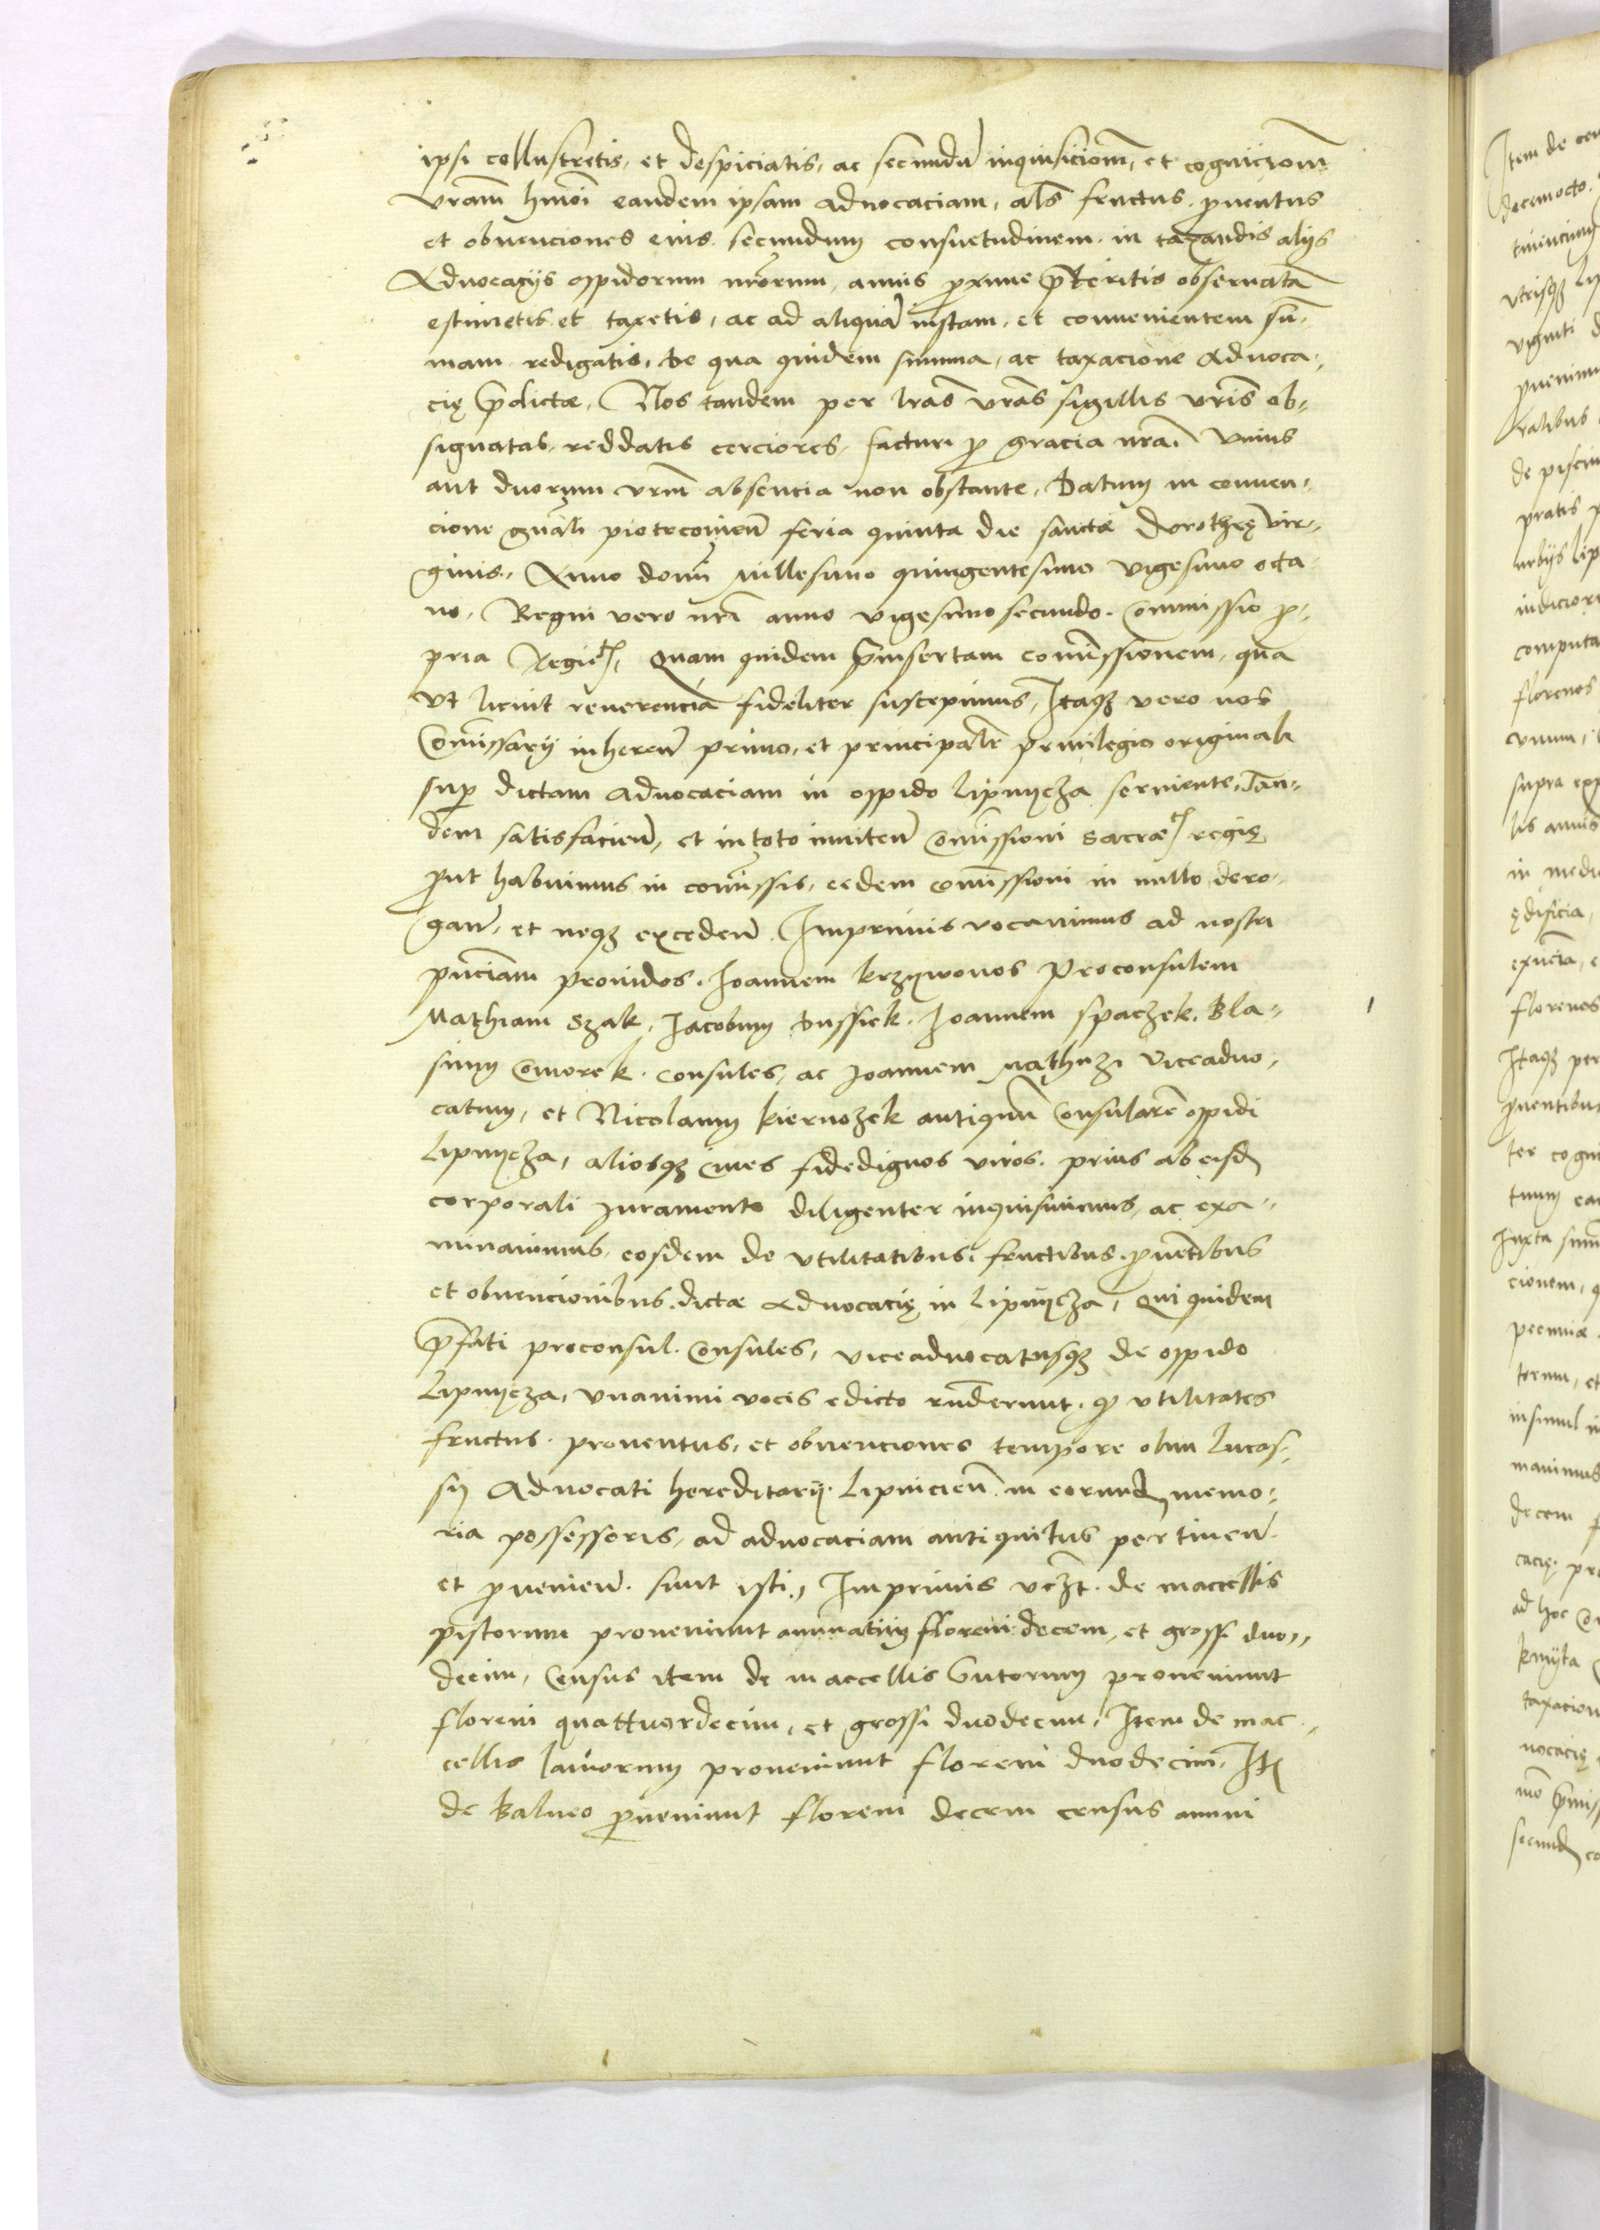 ipsi collustretis, et despiciatis, ac secundũ inquisicionẽ, et cognicionẽ
vrãm hmõi eandem ipsam aduocaciam, als̃ fructus, ꝓuentus
et obuenciones eius, secundum consuetudinem in taxandis alijs
Aduocacijs oppidorum nr̃orum, annis ꝓxime p̃teritis obseruatã
estimetis et taxetis, ac ad aliquã iustam, et conuenientem sũ-
mam redigatis, De qua quidem summa, ac taxacione Aduoca-
cię p̃dictæ, Nos tandem per lrãs vrãs sigillis vrĩs ob-
signatas, reddatis cerciores, facturi ꝓ gracia nrã. Vnius
aut duorum vrm̃ absencia non obstante, Datum in conuen-
cione gñali piotrcouieñ feria quinta die sanctæ Dorotheę vir-
ginis, Anno domĩ Millesimo quingentesimo vigesimo octa-
uo, Regni vero nrĩ anno vigesimo secundo. Commissio ꝓ-
pria Regie, Quam quidem p̃insertam comissionem, qua
vt licuit reuerencia fideliter suscepimus, Itaqꝫ vero nos
Comissarij inhereñ primo, et principali priuilegio originali
suꝑ dictam aduocaciam in oppido Lipnycza seruiente, Tan-
dem satisfacieñ, et in toto inniteñ comissioni sacræ regię
ꝓut habuimus in comissis, eidem comissioni in nullo dero-
gañ, et neqꝫ excedeñ. Imprimis vocauimus ad nostri
pñciam prouidos, Ioannem krzywonos Proconsulem
Mathiam Szak, Iacobum Dussiek, Ioannem Spaczek, Bla-
sium Comorek, consules, ac Ioannem Mathuzi viceaduo-
catum, et Nicolaum kiernozek antiquũ Consularẽ oppidi
Lipnycza, aliosqꝫ ciues fidedignos viros, prius ab eisd
corporali iuramento diligenter inquisiuimus, ac exa-
minauimus, eosdem de vtilitatibus, fructibus, ꝓuẽtibus
et obuencionibus, dictæ Aduocacię in Lipnycza, Qui quidem
p̃fati proconsul, Consules, viceaduocatusqꝫ de oppido
Lipnycza, vnanimi vocis edicto rñderunt, qꝫ vtilitates
fructus, prouentus, et obuenciones tempore olim Lucas-
sij Aduocati hereditarij Lipnicieñ in eorund memo-
ria possessoris, ad aduocaciam antiquitus pertineñ
et ꝓuenieñ. sunt isti, Imprimis vczt. de maccellis
pistorum proueniunt annuatim floreni decem, et grossi duo-
decim, Census item de maccellis Sutorum proueniunt
floreni quattuordecim, et grossi duodecim, Item de mac-
cellis laniorum proueniunt floreni duodecim, Itẽ
de Balneo ꝓueniunt floreni decem census annui